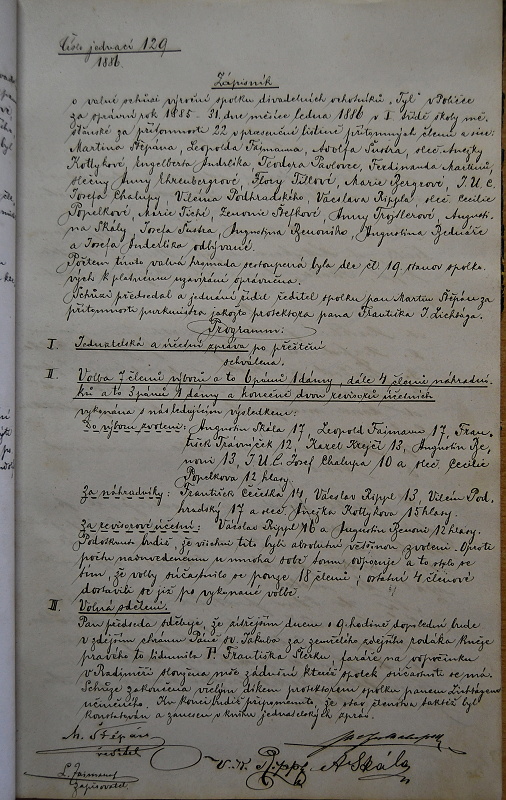 Číslo jednací 129
1886.
Zápisník
o valné schůzi výroční spolku divadelních ochotníků „Tyl“ v Poličce
za správní rok 1885 - 31. dne měsíce ledna 1886 v I. třídě školy mě-
šťanské za přítomnosti 22 v presenční listině přítomných členů a sice:
Martina Štěpána, Leopolda Fajmanna, Adolfa Šustra, slec. Anežky
Kotlykové, Engelberta Jindelíka Teodora Pavlovce, Ferdinanda Martinů,
slečiny Anny Ehrenbergrové, Flory Tillové, Marie Bergrové, J.U.C.
Josefa Chalupy, Viléma Podhradského, Václava Rippla, slec. Cecilie
Popelkové, Marie Tiché, Zenonie Steflkové, Anny Trojtlerové, Augusti-
na Skály, Josefa Šustra, Augustina Benoniho, Augustina Bednáře
a Josefa Jindelíka odbývané.
Pořízení tímto valná hromada sestoupená byla dle čl. 19. stanov spolko-
vých k platnému uzavírání oprávněna.
Schůzi předsedal a jednání řídil ředitel spolku pan Martin Štěpán za
přítomnosti purkmistra jakožto protektora pana Františka J. Lichtága.
Programm:
I. Jednatelská a účetní zpráva po přečtení
schválena.
II. Volba 7 členů výboru a to 6 pánů 1 dámy, dále 4 členů náhradní-
ků a to 3 pánů 1 dámy a konečně dvou revisorů účetních
vykonána s následujícím výsledkem:
Do výboru zvoleni: Augustin Skála 17, Leopold Fajmann 17, Fran-
tišek Trávníček 12, Karel Krejčí 13, Augustin Be-
noni 13, J.U.C. Josef Chalupa 10 a slec. Cecilie
Popelkova 12 hlasy.
Za náhradníky: František Cecetka 14, Václav Rippl 13, Vilém Pod-
hradský 17 a slec. Anežka Kotlykova 15 hlasy.
Za revisory účetní: Václav Rippl 16 a Augustin Benoni 12 hlasy.
Podotknuto budiž, že všichni tito byli absolutní většinou zvoleni. Oproti
počtu nadzvedenému u mnoha sobě tomu odporuje a to stalo se
tím, že volby súčastnilo se pouze 18 členů; ostatní 4 členové
dostavili se již po vykonané volbě.
III. Volná sdělení.
Pan předseda sděluje, že zítřejším dnem o 9. hodině dopolední bude
v zdejším chrámu Páně sv. Jakuba za zemřelého zdejšího rodáka kněze
pravého to lidumila P. Františka Štefku, faráře na odpočinku
v Radiměři sloužena mše zádušní kteréž spolek súčastniti se má.
Schůze zakončena vřelým díkem protektorem spolku panem Lichtágem
učiněného. Ku konci budiž připomenuto, že stav členstva taktéž byl
konstatován a zanesen v knihu jednatelských zpráv.
M. Štěpán
ředitel
V. K. Rippl
A. Skála
L. Fajmann
zapisovatel.